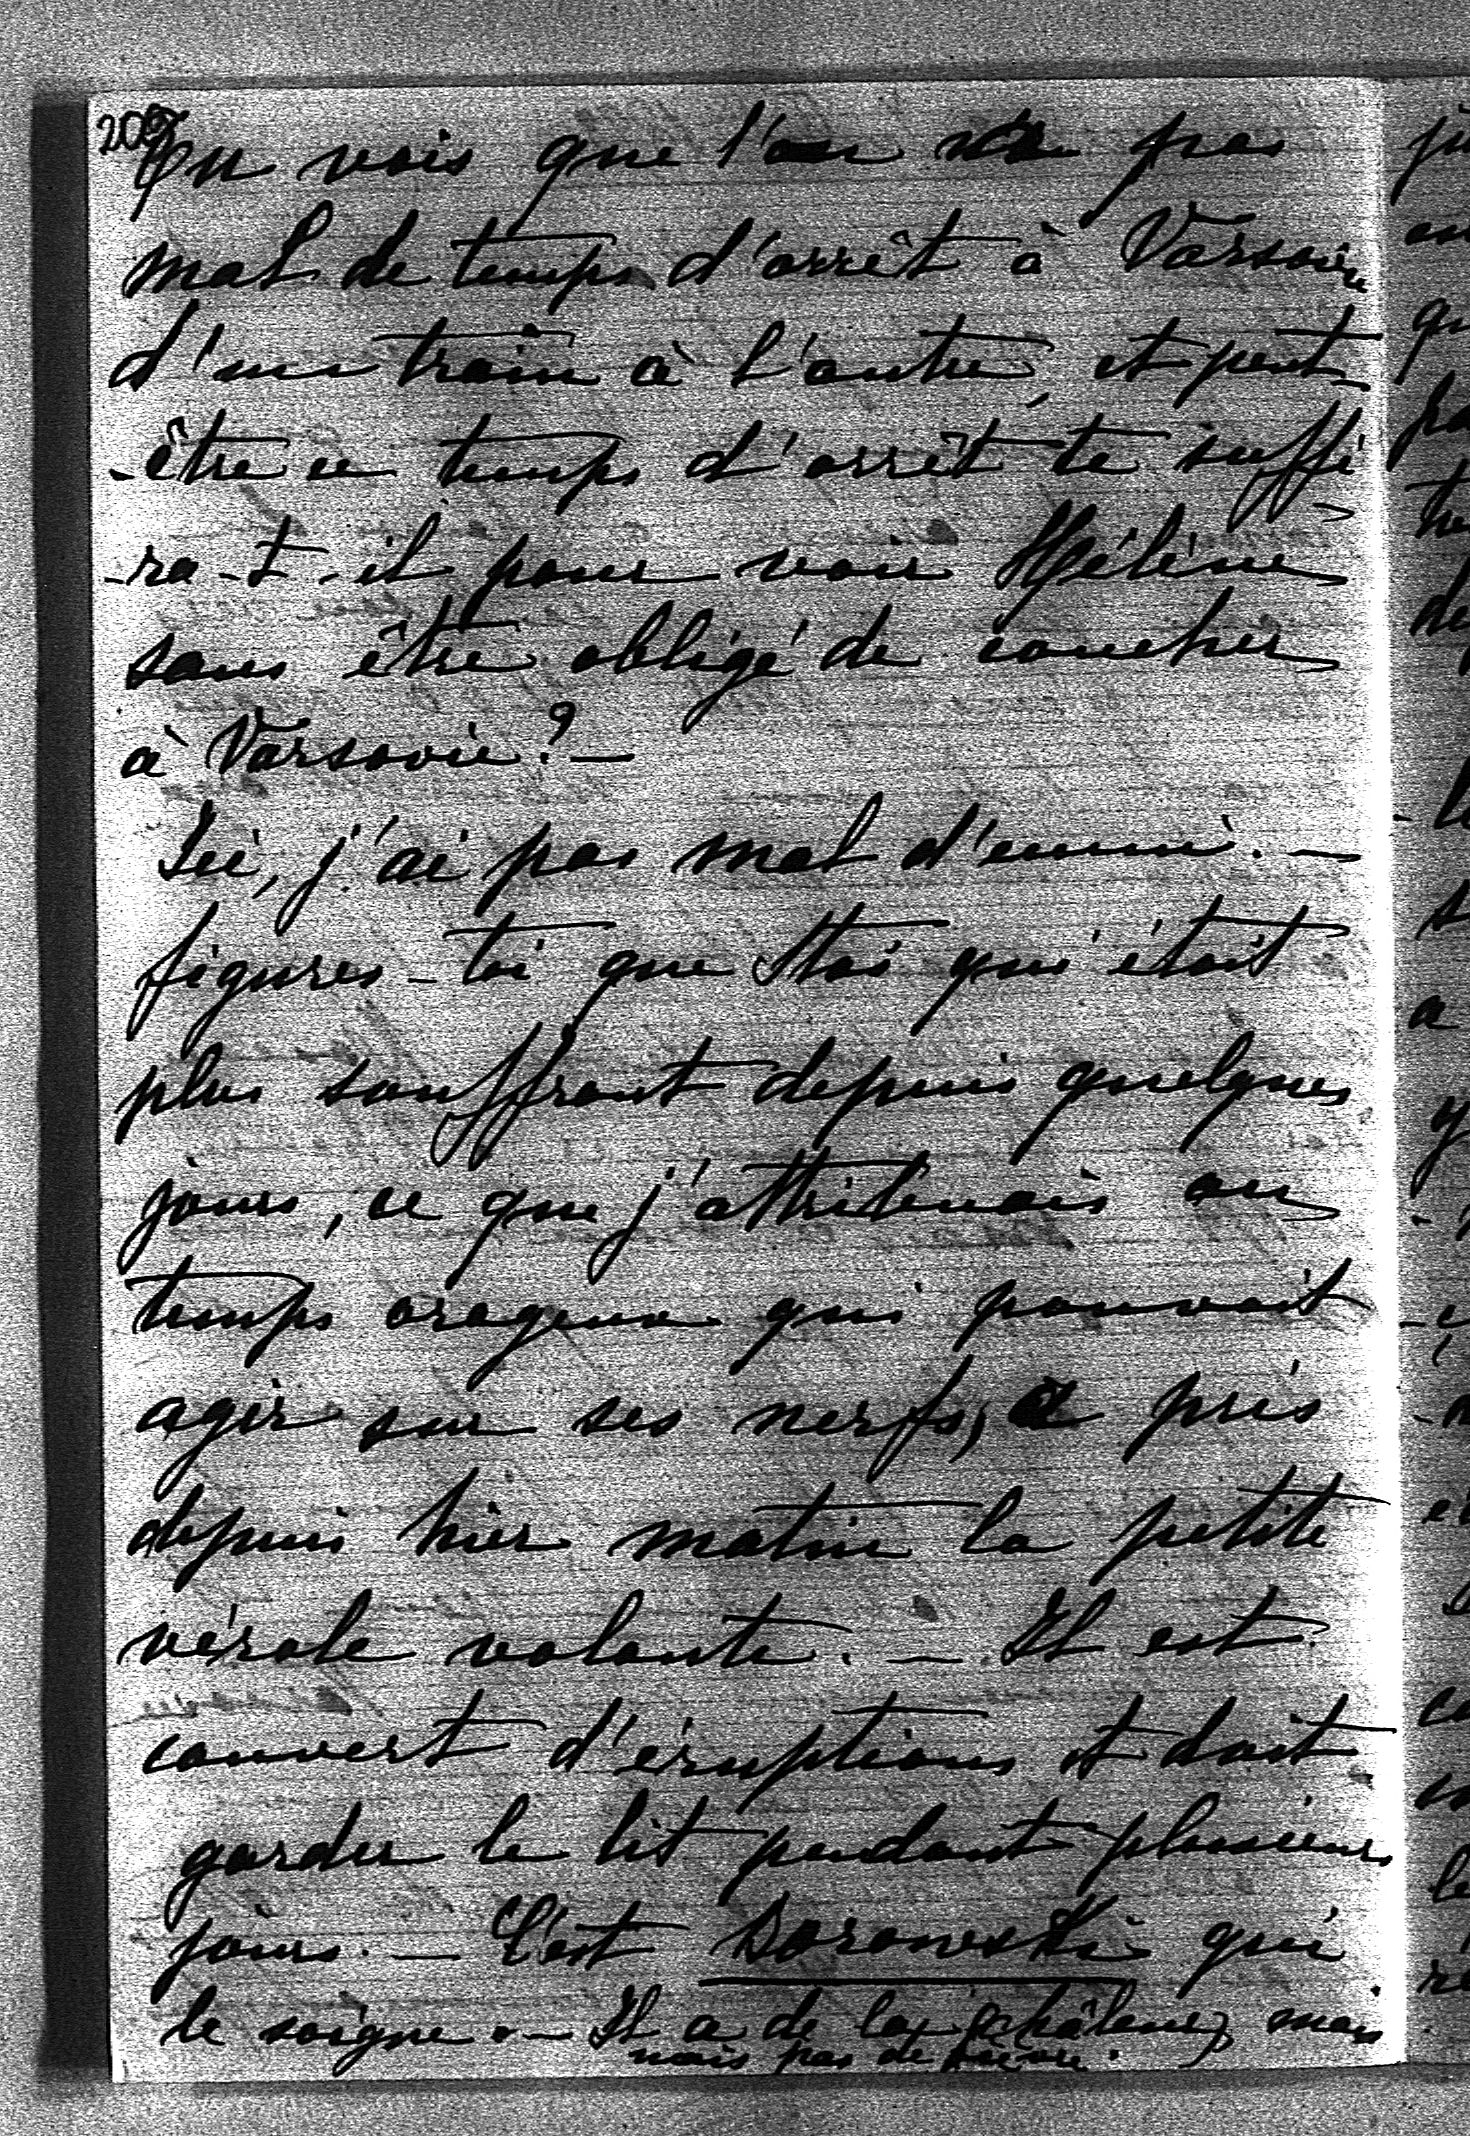 205
Tu vois que l'on n'a pas
mal de temps d'arrêt à Varsovie
d'un train à l'autre, et peut-
-être ce temps d'arrêt te suffi-
-ra-t-il pour voir Hélène
sans être obligé de coucher
à Varsovie? —
Ici, j'ai pas mal d'ennui. —
figures-toi que Stas qui était
plus souffrant depuis quelques
jours, ce que j'attribuais au
temps orageux qui pouvait
agir sur ses nerfs, a pris
depuis hier matin la petite
vérole volante. — Il est
couvert d'éruptions et doit
garder le lit pendant plusieurs
jours. — C'est Boronski qui
le soigne. — Il a de la chaleur, mais
mais pas de fièvre.